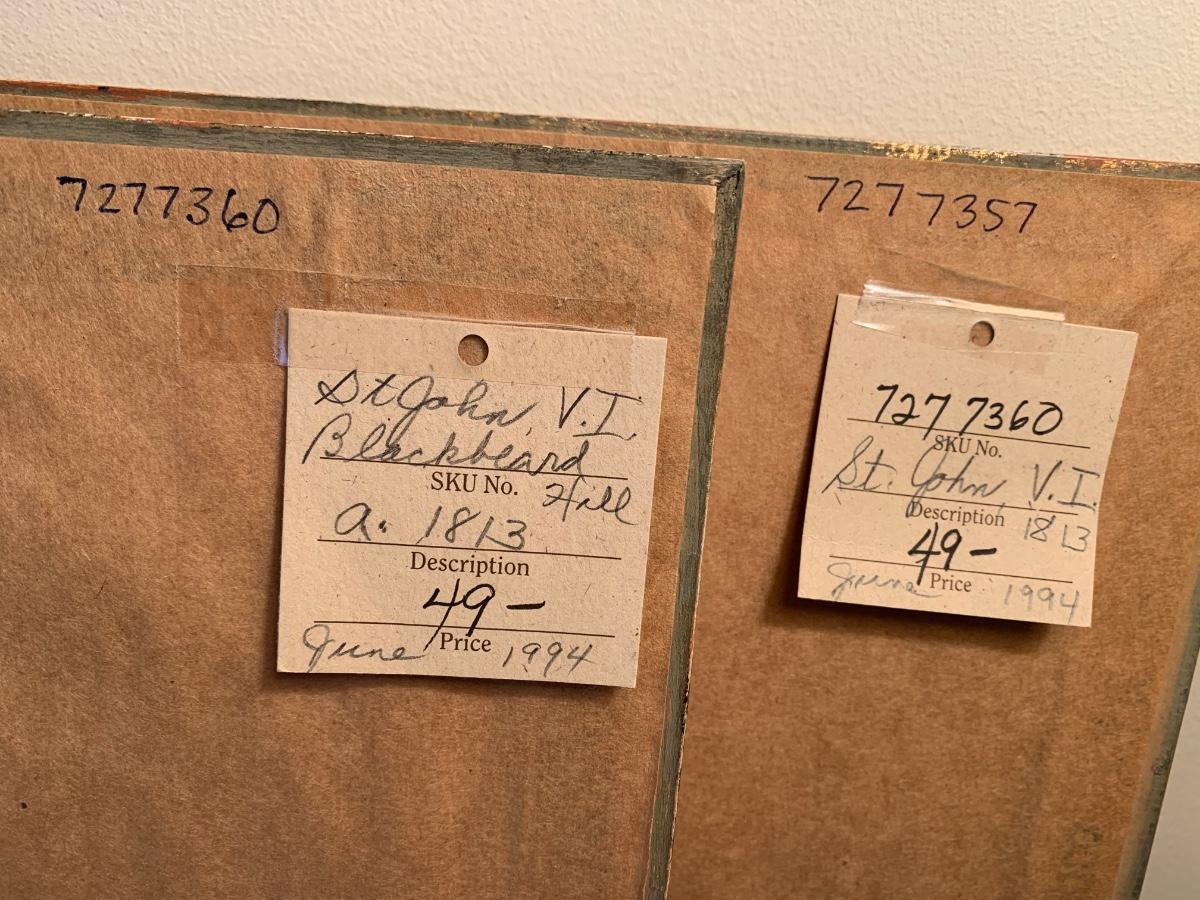 7277360
St John, V.I.
Blackbeard
SKU No.
Hill
a. 1813
Description
49-
Price
June 1994
7277357
7277360
SKU No.
St. John, V.I.
Description
1813
49-
Price
June 1994